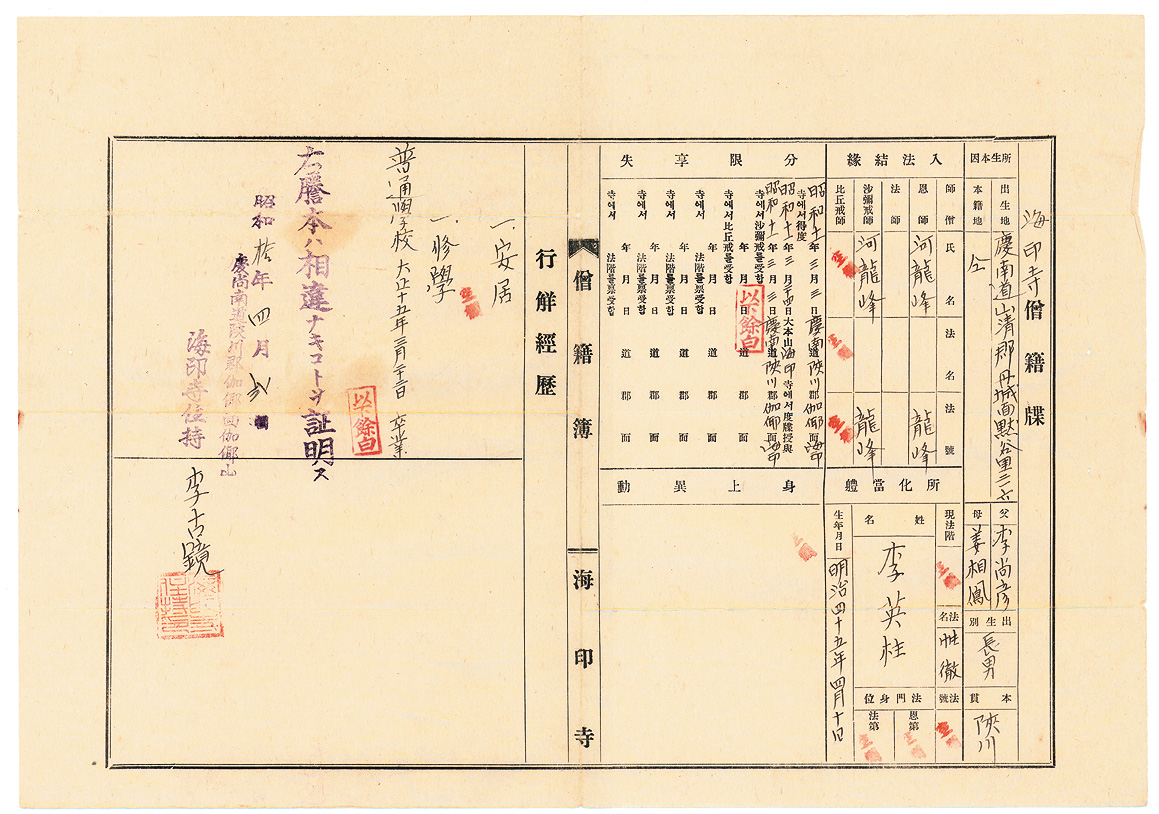 海印寺僧籍牒
所生本因
出生地 慶南道山清郡丹城面黙谷里三六
本籍地 仝
父 李尚彦
母 姜相鳳
出生別
長男
本貫
陜川
入法結緣
師僧 氏名 法名 法號
恩師 河龍峰 龍峰
法師
沙彌戒師 河龍峰 龍峰
比丘戒師
所化當體
現法階
法名
性徹
法號
姓名
李英柱
法門身位
恩第
法第
生年月日
明治四十五年四月十日
分限享失
昭和十二年三月三日慶南道陜川郡伽倻面海印
寺에서得度
昭和十二年三月二十四日大本山海印寺에서度牒授與
昭和十二年三月三日慶南道陜川郡伽倻面海印
寺에서沙彌戒를受함
年月日道郡面
寺에서比丘戒를受함
年月日道郡面
寺에서法階를稟受함
年月日道郡面
寺에서法階를稟受함
年月日道郡面
寺에서法階를稟受함
年月日道郡面
寺에서法階를稟受함
以下餘白
身上異動
僧籍簿 海印寺
行解經歷
一、安居
一、修學
普通學校 大正十五年三月二十三日 卒業
以下餘白
右謄本ハ相違ナキコトヲ証明ス
昭和拾年四月
慶尚南道陜川郡伽倻面伽倻山
海印寺住持
李古鏡